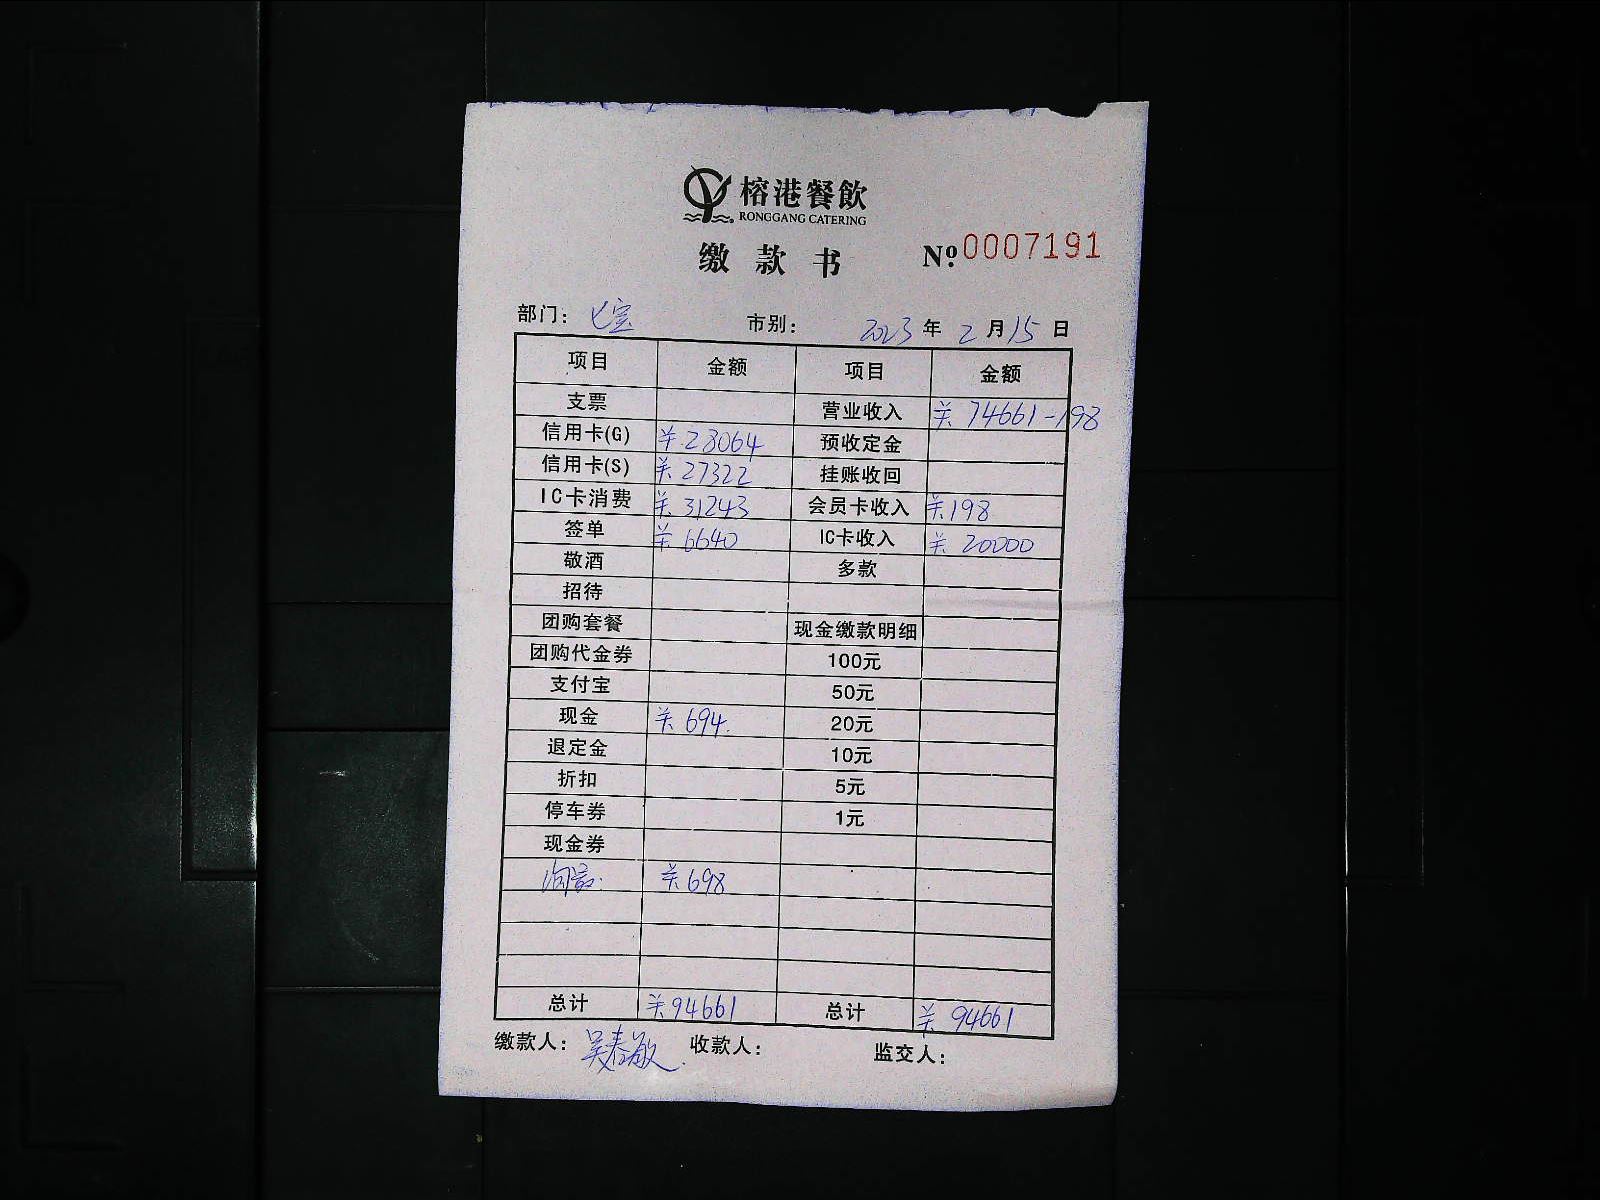 榕港餐飲
RONGGANG CATERING
缴款书 Nº:0007191
部门：七宝 市别： 2023年2月15日
项目 金额 项目 金额
支票 营业收入 ¥74661-198
信用卡(G) ¥28064 预收定金
信用卡(S) ¥27322 挂账收回
IC卡消费 ¥31243 会员卡收入 ¥198
签单 ¥6640 IC卡收入 ¥20000
敬酒 多款
招待
团购套餐 现金缴款明细
团购代金券 100元
支付宝 50元
现金 ¥694. 20元
退定金 10元
折扣 5元
停车券 1元
现金券
¥698
总计 ¥94661 总计 ¥94661
缴款人：吴春敏 收款人： 监交人：